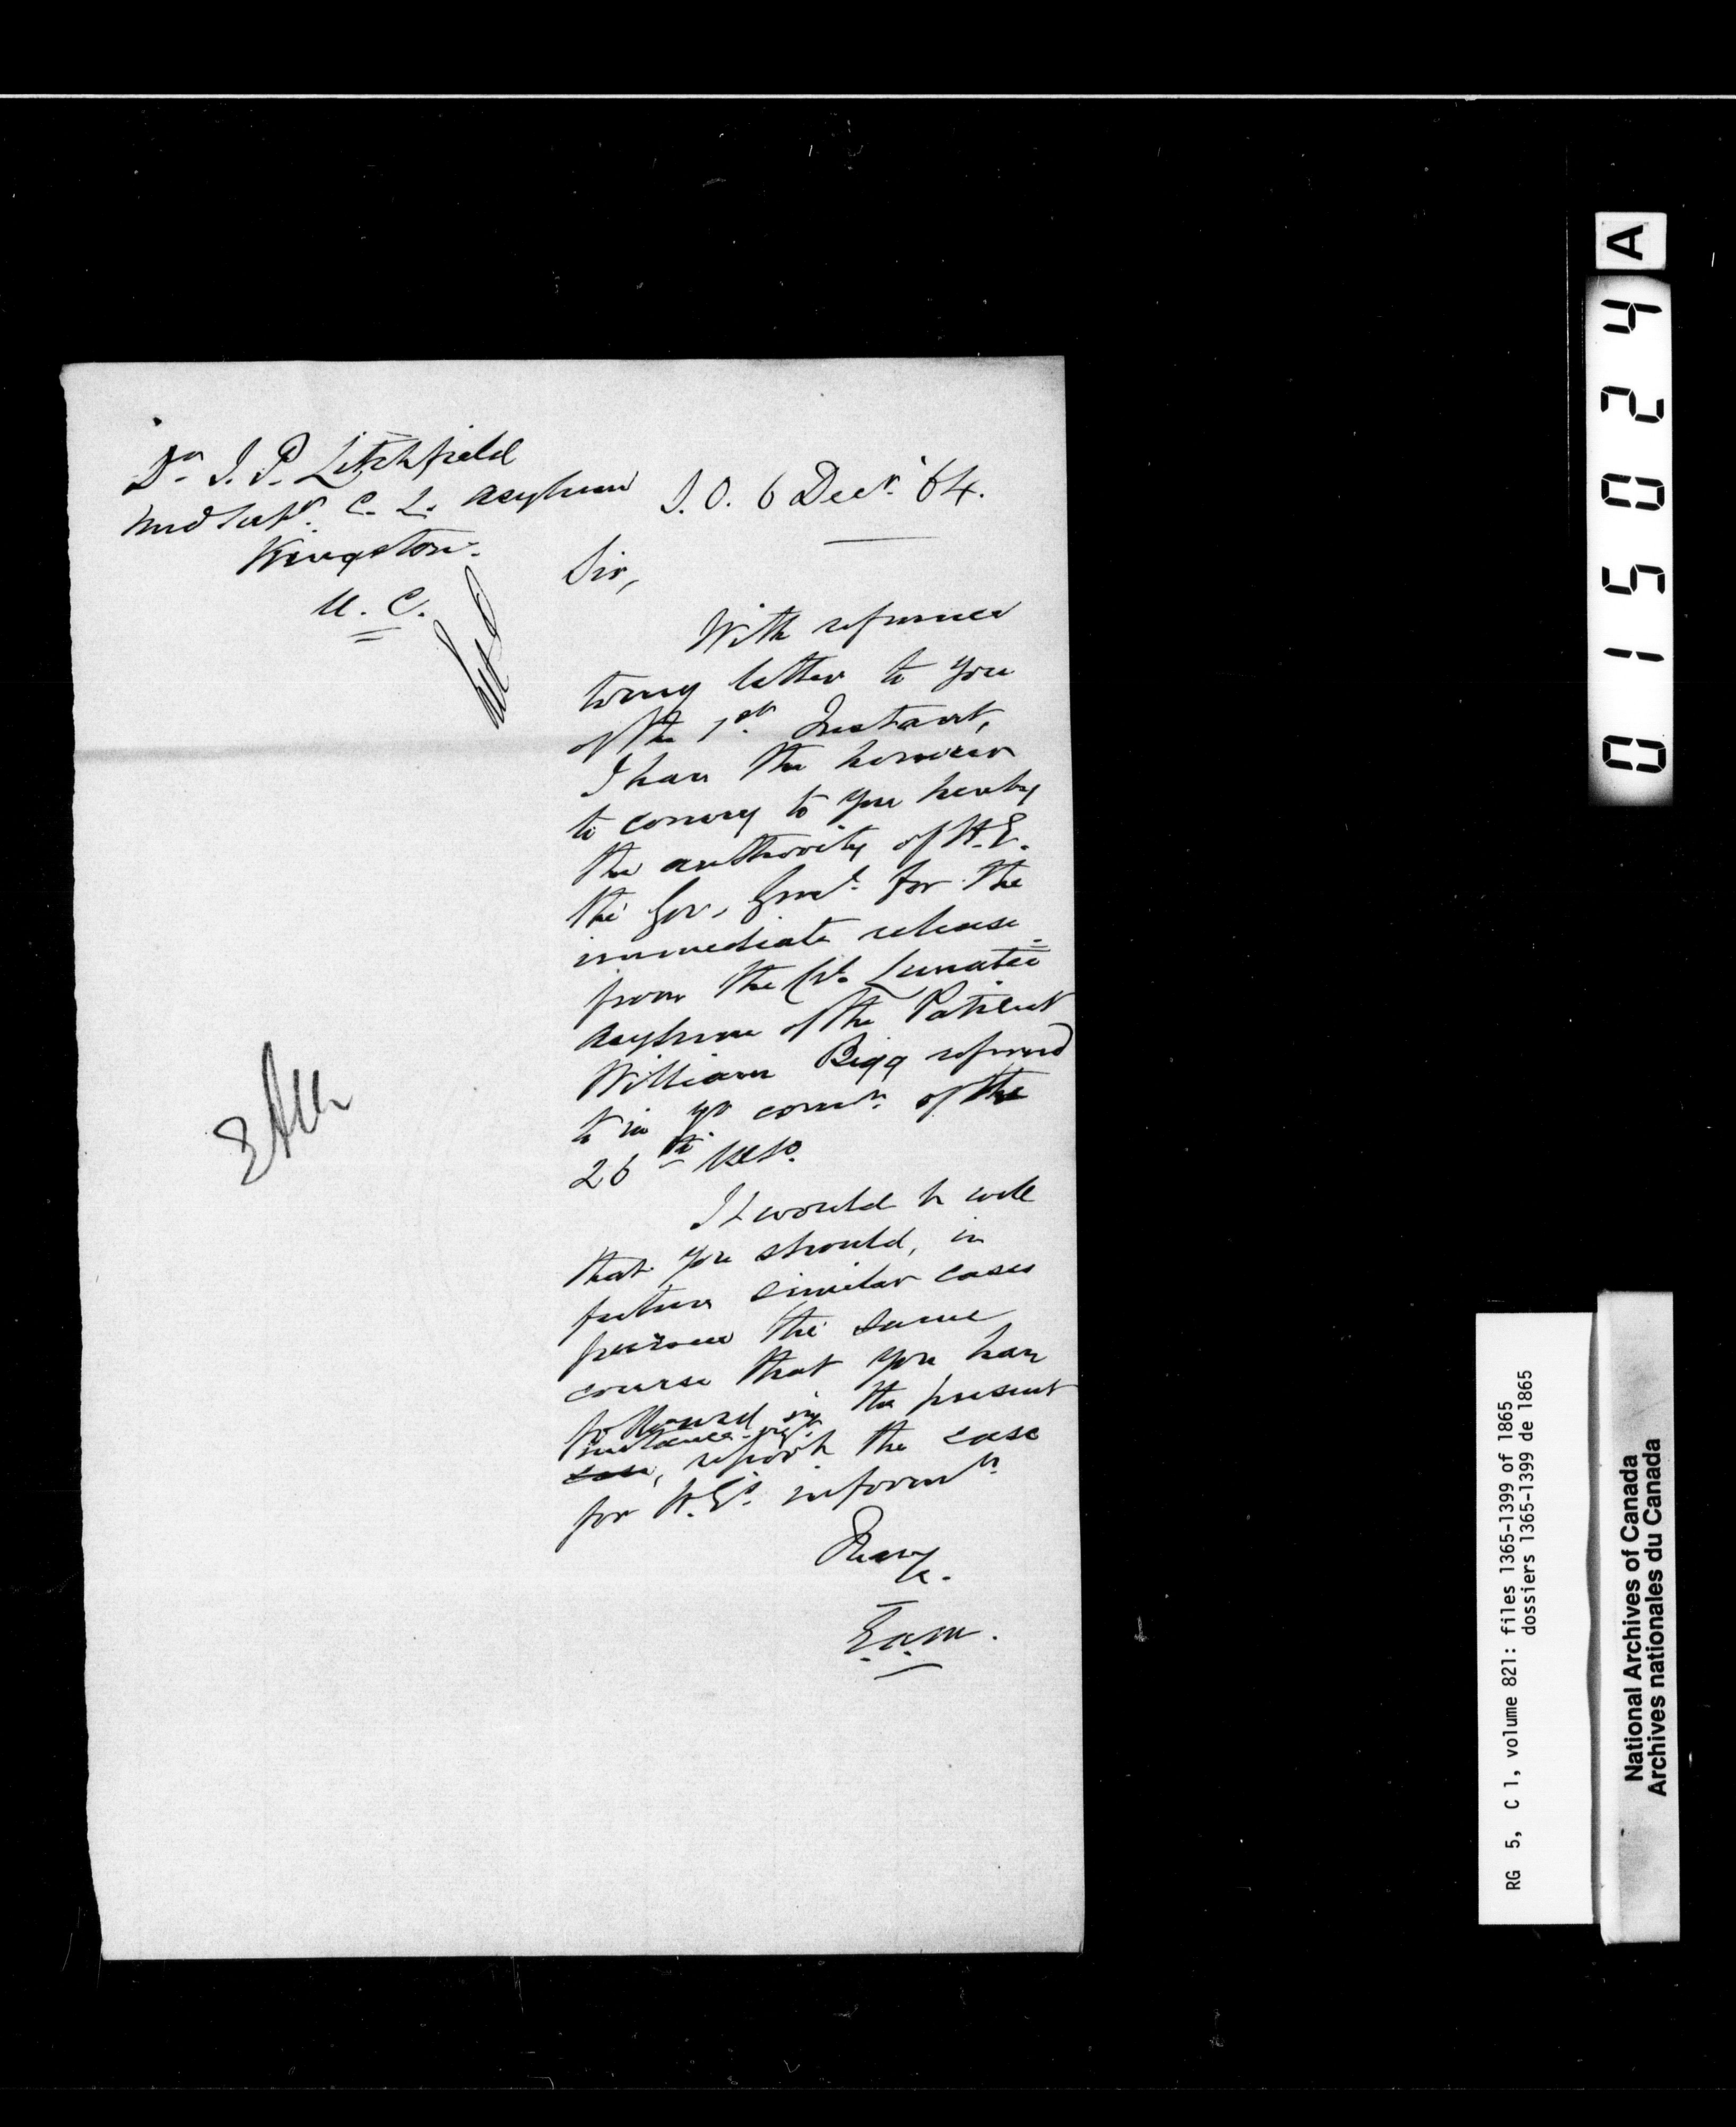 Dr. J. P. Litchfield
Med Supt. C. L. Asylum
Kingston.
U. C.
S. O. 6 Decr. 64.
Sir,
With reference
to my letter to you
of the 1st. Instant,
I have the honour
to convey to you hereby
the authority of H.E.
the Gov. Genl. for the
immediate release
from the Lunatic
Asylum of the Patient
William Bigg referred
to in yr. comn. of the
26th Ulto.
It would be well
that you should, in
future similar cases
pursue the same
course that you have
followed in the present
instance
case, report the case
for H.E's. informn
EAM
E.A.M.
A
015024
RG 5, C 1, volume 821: files 1365-1399 of 1865
dossiers 1365-1399 de 1865
National Archives of Canada
Archives nationales du Canada